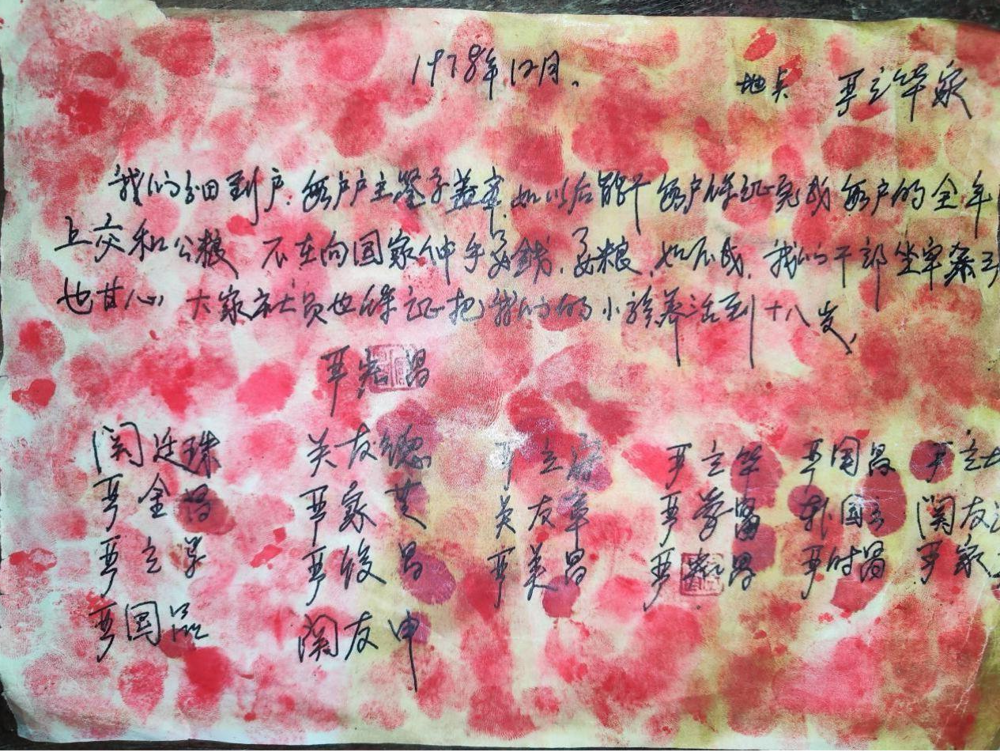 1978年12月、 地点 严立华家
我们分田到户，每户户主签字盖章，如以后能干 每户保证完成每户的全年
上交和公粮 不在向国家伸手要钱，要粮，如不成，我们干部坐牢杀头
也甘心、大家社员也保证把我们的小孩养活到十八岁，
严宏昌
関廷珠 关友德 严立符 严立华 严国昌 严立
严金昌 严家芝 关友章 严学昌 韩国云 関友
严立学 严俊昌 严美昌 严宏昌 严付昌 严家
严国品 関友申